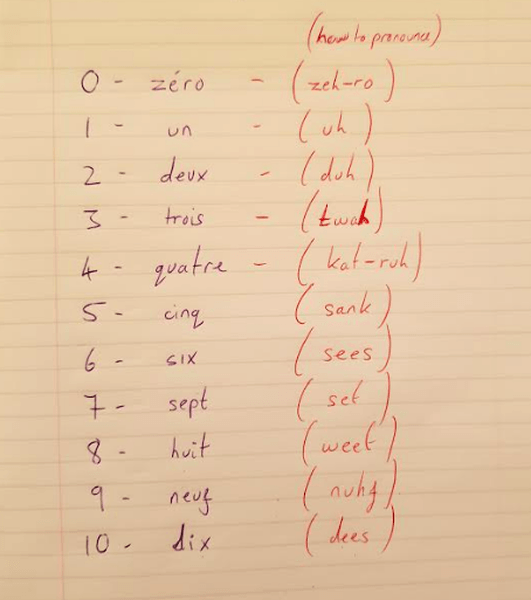 (how to pronounce)
0 - zéro - (zeh-ro)
1 - un - (uh)
2 - deux - (duh)
3 - trois - (twah)
4 - quatre - (kat-ruh)
5 - cinq (sank)
6 - six (sees)
7 - sept (set)
8 - huit (weet)
9 - neuf (nuhf)
10 - dix (dees)